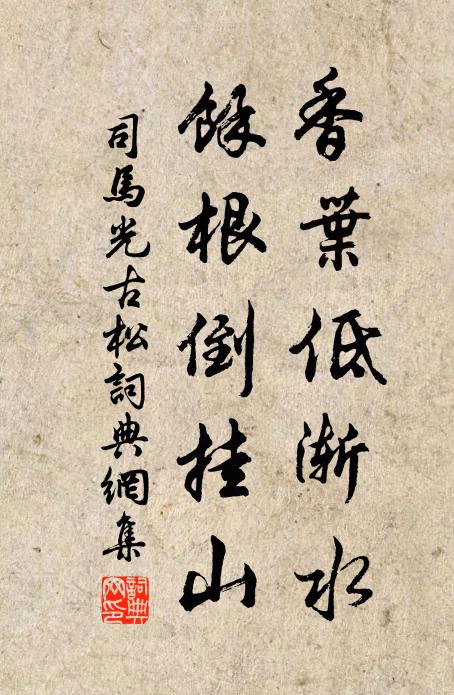 香葉低漸水
餘根倒挂山
司馬光古松詞典網集
詞典網印